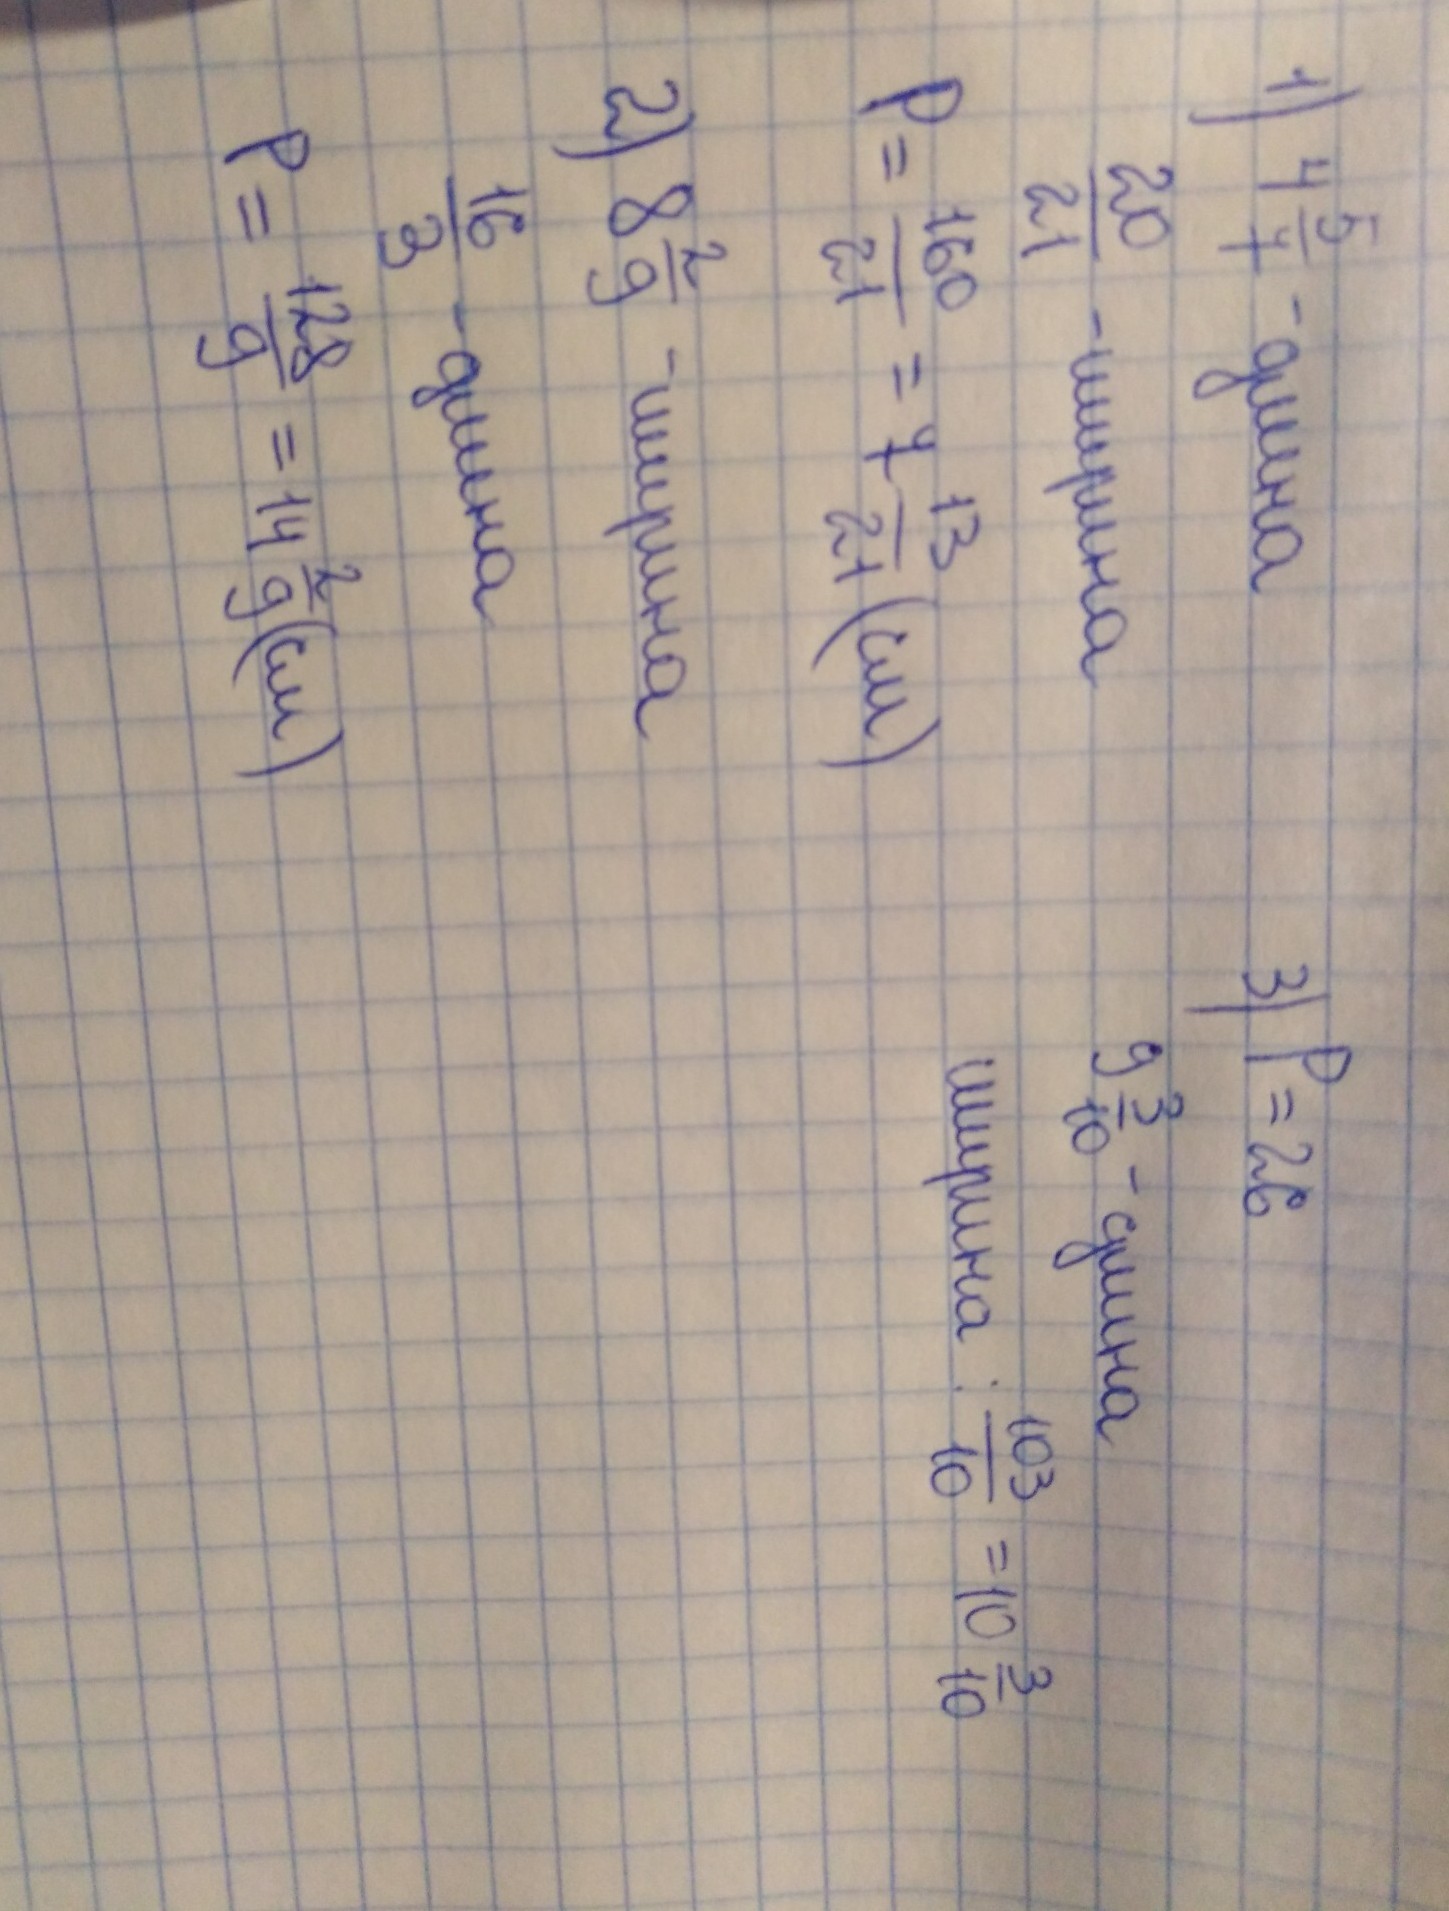 1) 4 5/7 - длина
20/21 - ширина
P = 160/21 = 7 13/21 (см)
2) 8 2/9 - ширина
16/3 - длина
P = 128/9 = 14 2/9 (см)
3) P = 26
9 3/10 - длина
ширина : 103/10 = 10 3/10